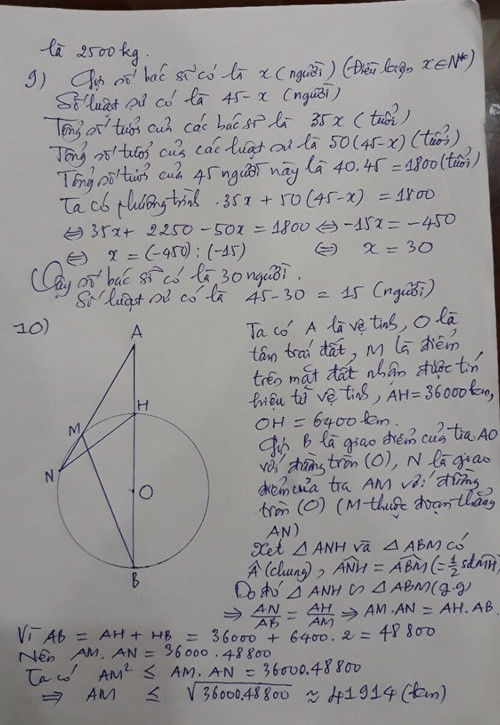 là 2500 kg.
9) Gọi số bác sĩ có là x (người) (Điều kiện x∈N*)
Số luật sư có là 45 - x (người)
Tổng số tuổi của các bác sĩ là 35x (tuổi)
Tổng số tuổi của các luật sư là 50(45-x) (tuổi)
Tổng số tuổi của 45 người này là 40.45 = 1800 (tuổi)
Ta có phương trình .35x + 50(45-x) = 1800
⇔ 35x + 2250 - 50x = 1800 ⇔ -15x = -450
⇔ x = (-450) : (-15) ⇔ x = 30
Vậy số bác sĩ có là 30 người.
Số luật sư có là 45-30 = 15 (người)
10)
A
H
M
N
O
B
Ta có A là vệ tinh, O là
tâm trái đất, M là điểm
trên mặt đất nhận được tín
hiệu từ vệ tinh, AH = 36000km,
OH = 6400 km.
Gọi B là giao điểm của tia AO
với đường tròn (O), N là giao
điểm của tia AM với đường
tròn (O) (M thuộc đoạn thẳng
AN)
Xét △ANH và △ABM có
Â (chung), ANH = ABM (= 1/2 sđ MH)
Do đó △ANH ∽ △ABM (g.g)
⇒ AN/AB = AH/AM ⇒ AM.AN = AH.AB.
Vì AB = AH + HB = 36000 + 6400.2 = 48800
Nên AM.AN = 36000.48800
Ta có AM² ≤ AM.AN = 36000.48800
⇒ AM ≤ √36000.48800 ≈ 41914 (km)